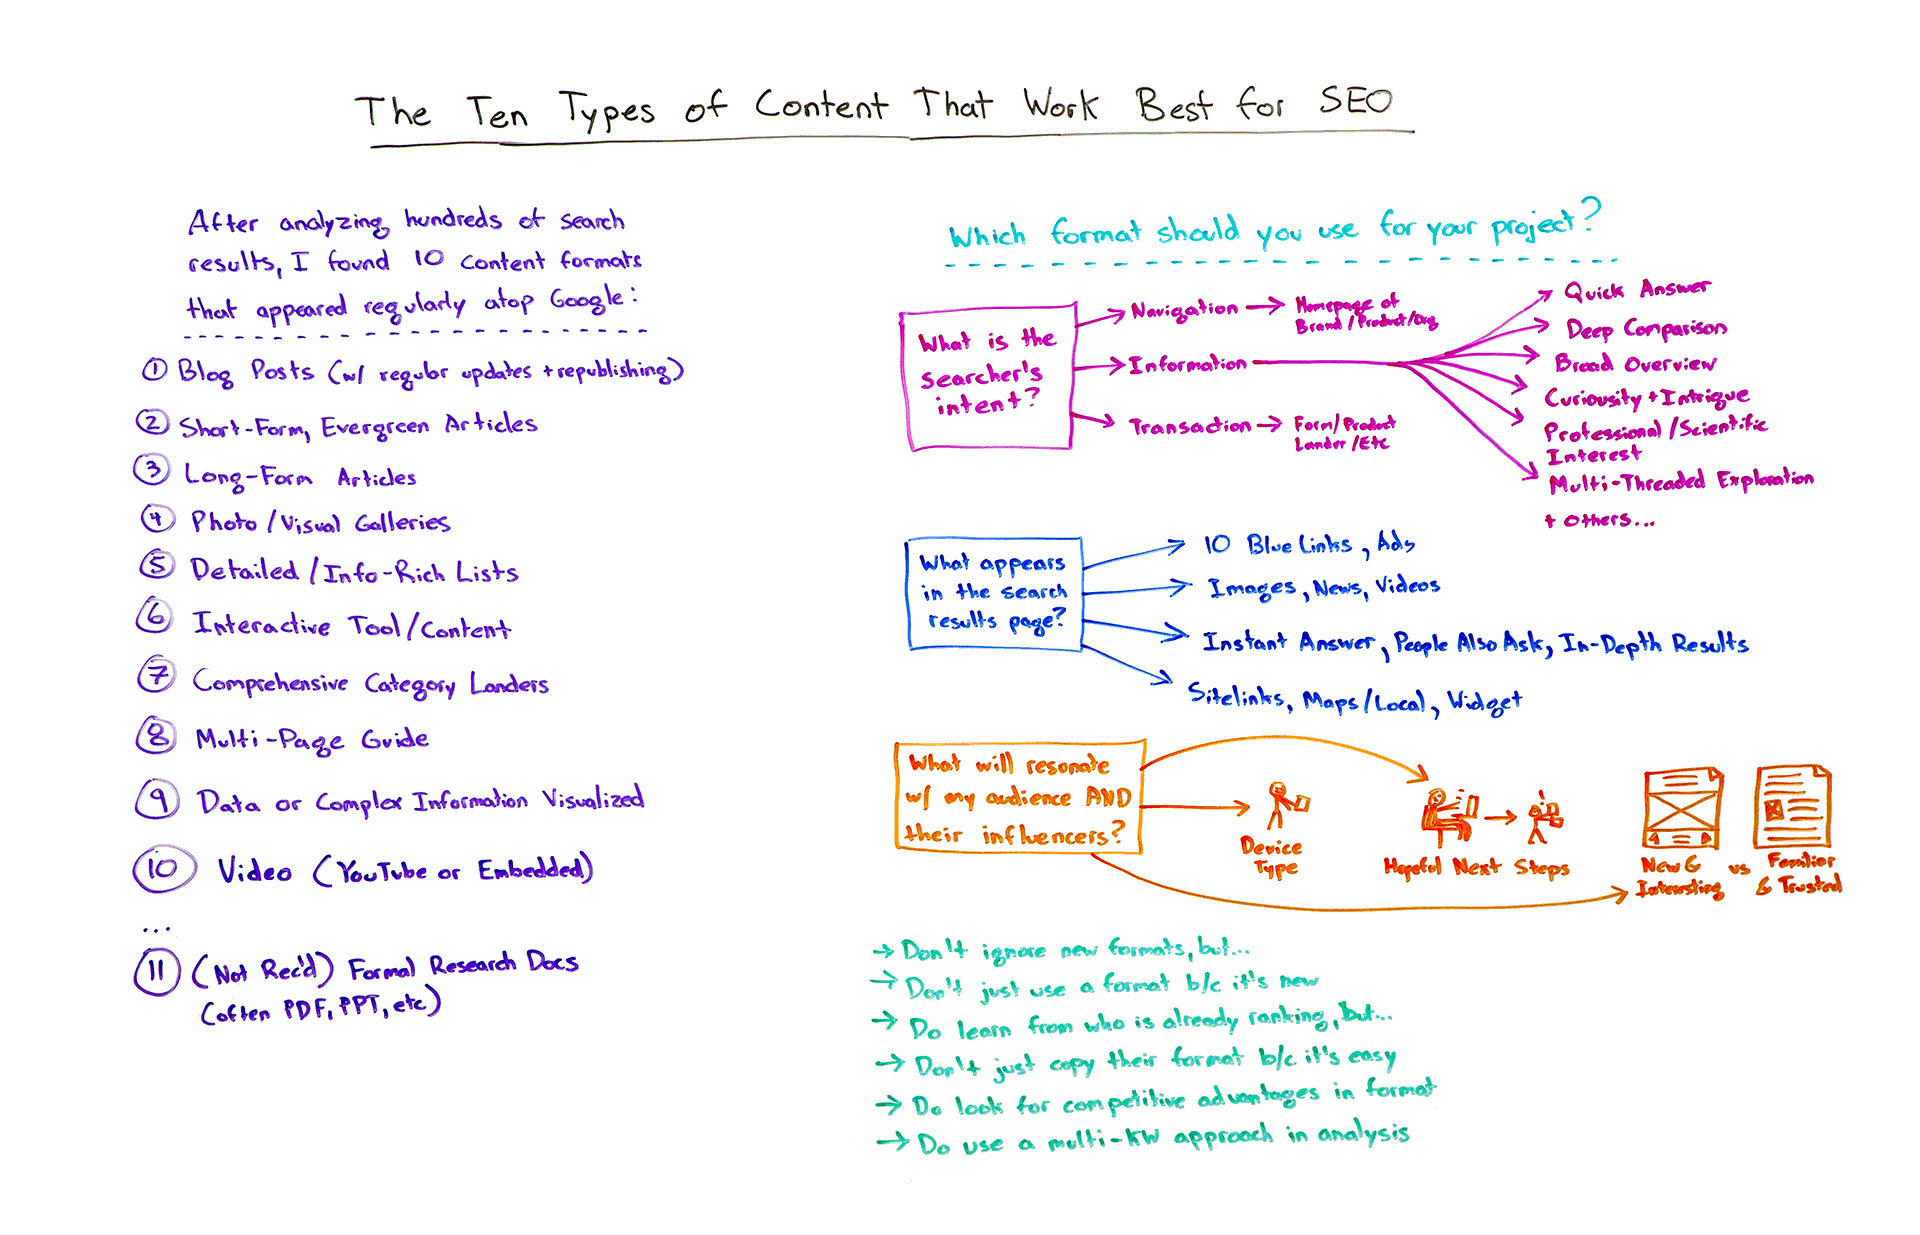 The Ten Types of Content That Work Best for SEO
After analyzing hundreds of search
results, I found 10 content formats
that appeared regularly atop Google:
1 Blog Posts (w/ regular updates + republishing)
2 Short-Form, Evergreen Articles
3 Long-Form Articles
4 Photo/Visual Galleries
5 Detailed/Info-Rich Lists
6 Interactive Tool/Content
7 Comprehensive Category Landers
8 Multi-Page Guide
9 Data or Complex Information Visualized
10 Video (YouTube or Embedded)
...
11 (Not Rec'd) Formal Research Docs
(often PDF, PPT, etc)
Which format should you use for your project?
What is the
searcher's
intent?
Navigation → Homepage of
Brand/Product/Org
Information
Quick Answer
Deep Comparison
Broad Overview
Curiousity + Intrigue
Professional/Scientific
Interest
Multi-Threaded Exploration
+ others...
Transaction → Form/Product
Lander/Etc
What appears
in the search
results page?
10 Blue Links, Ads
Images, News, Videos
Instant Answer, People Also Ask, In-Depth Results
Sitelinks, Maps/Local, Widget
What will resonate
w/ my audience AND
their influencers?
Device
Type
Hopeful Next Steps
New &
Interesting
vs
Familiar
& Trusted
→ Don't ignore new formats, but...
→ Don't just use a format b/c it's new
→ Do learn from who is already ranking, but...
→ Don't just copy their format b/c it's easy
→ Do look for competitive advantages in format
→ Do use a multi-KW approach in analysis